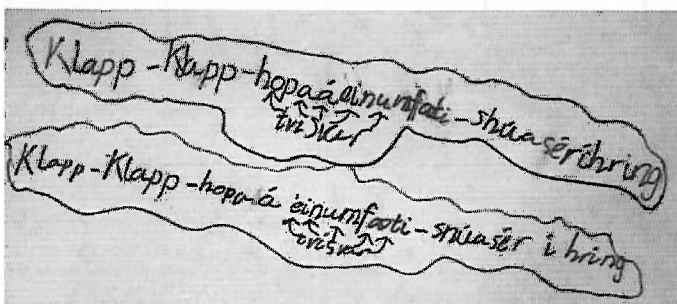 Klapp-Klapp-hopaáeinumfæti-snúasér íhring
tvisvar
Klapp-Klapp-hopa-á einumfæti-snúasér i hring
tvisvar